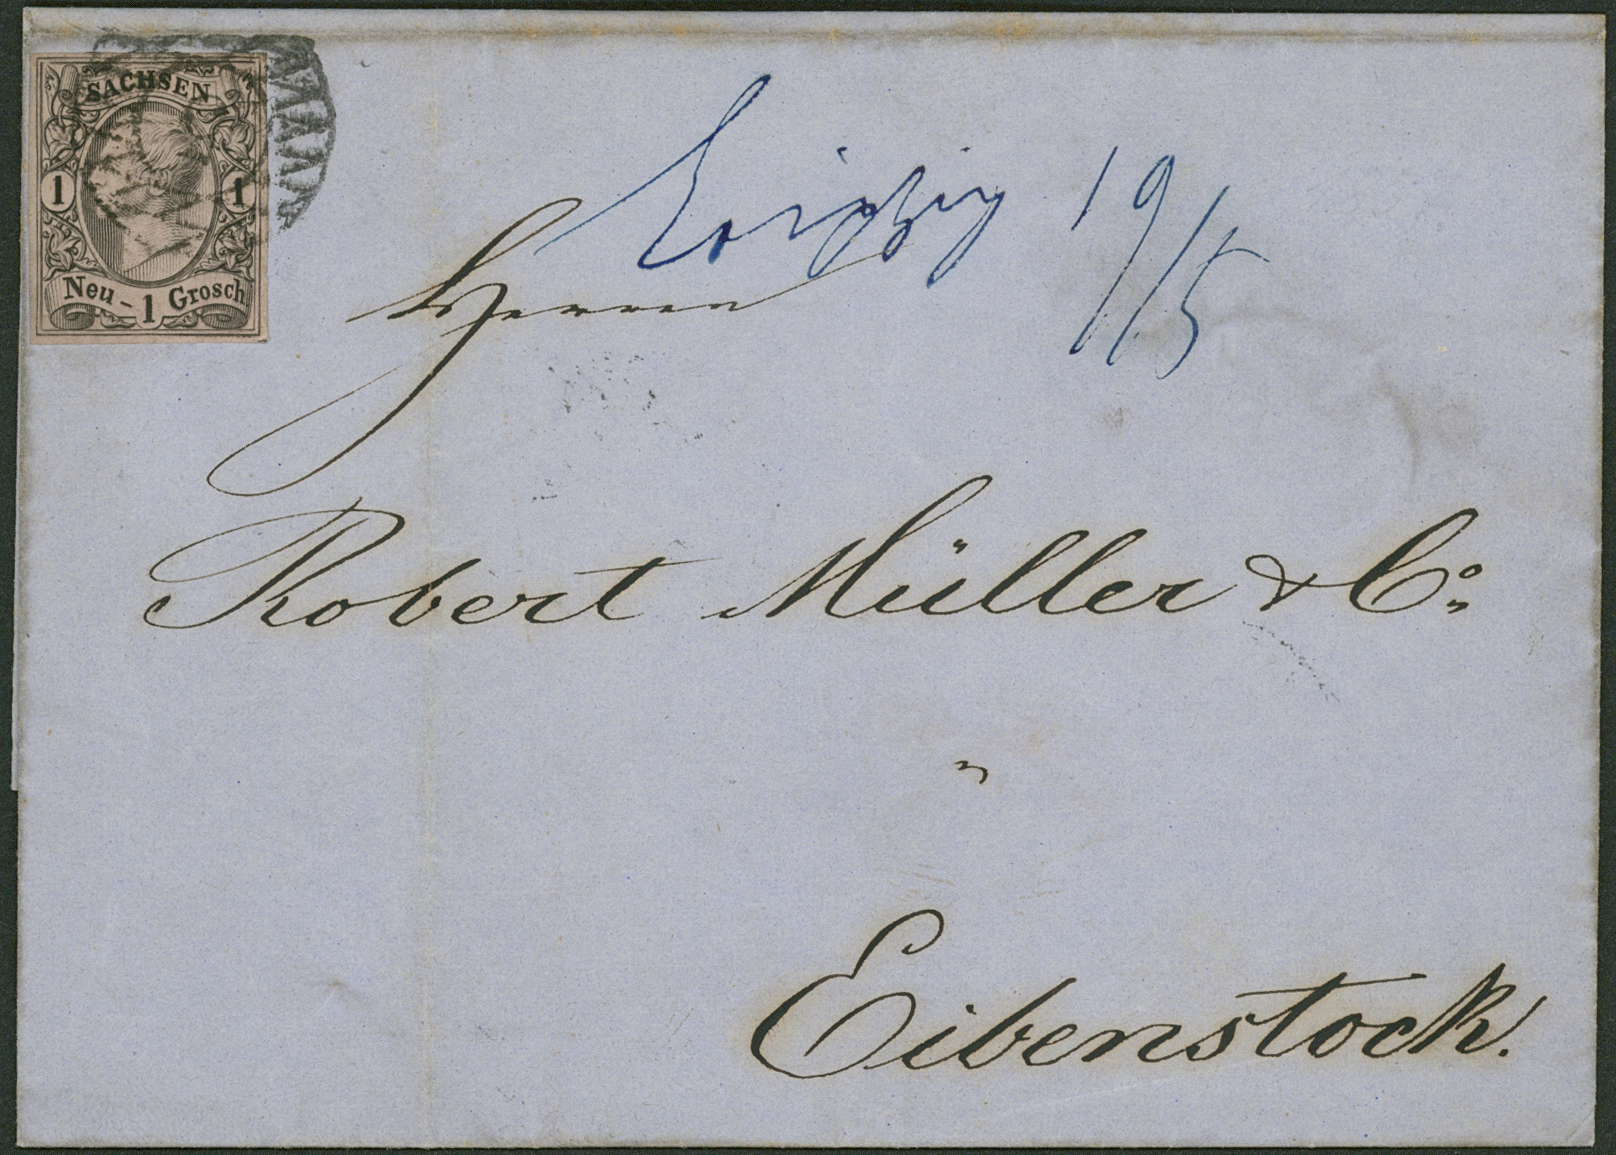 SACHSEN
1 1
Neu - 1 Grosch
Leipzig 19/5
Herren
Robert Müller & Co:
"
Eibenstock.